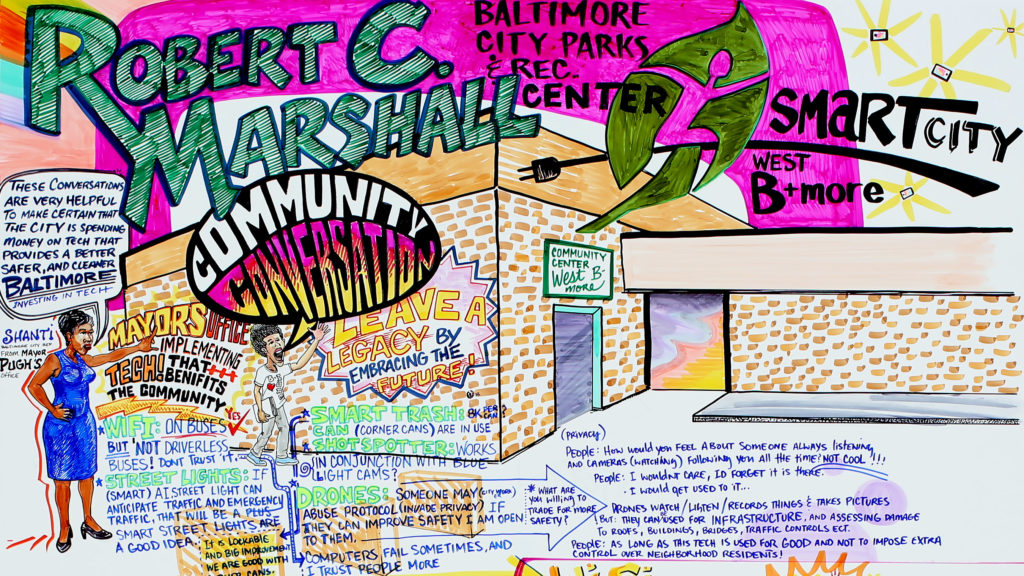 ROBERT C.
MARSHALL
BALTIMORE
CITY PARKS
& REC.
CENTER
SMART CITY
WEST
B+more
COMMUNITY
CONVERSATION
COMMUNITY
CENTER
West B.
more
THESE CONVERSATIONS
ARE VERY HELPFUL
TO MAKE CERTAIN THAT
THE CITY IS SPENDING
MONEY ON TECH THAT
PROVIDES A BETTER
SAFER, AND CLEANER
BALTIMORE
INVESTING IN TECH
SHANTI
BALTIMORE CITY REP
FROM MAYOR
PUGH'S
OFFICE
MAYORS OFFICE
IMPLEMENTING
TECH! THAT +++
BENEFITS
THE COMMUNITY
LEAVE A
LEGACY BY
EMBRACING THE
FUTURE!
YES
*WIFI: ON BUSES
BUT NOT DRIVERLESS
BUSES! DONT TRUST IT.
*STREET LIGHTS: IF
(SMART) AI STREET LIGHT CAN
ANTICIPATE TRAFFIC AND EMERGENCY
TRAFFIC, THAT WILL BE A PLUS
SMART STREET LIGHTS ARE
A GOOD IDEA.
IT IS LOCKABLE
AND BIG IMPROVEMENT
WE ARE GOOD WITH
CANS.
*SMART TRASH: 8K PER CAN?
CAN (CORNER CANS) ARE IN USE
SHOTSPOTTER: WORKS
IN CONJUNCTION WITH BLUE
LIGHT CAMS!
DRONES: SOMEONE MAY
ABUSE PROTOCOL (INVADE PRIVACY) IF
THEY CAN IMPROVE SAFETY I AM OPEN
TO THEM.
COMPUTERS FAIL SOMETIMES, AND
I TRUST PEOPLE MORE
*WHAT ARE
YOU WILLING TO
TRADE FOR MORE
SAFETY?
(PRIVACY)
PEOPLE: HOW WOULD YOU FEEL ABOUT SOMEONE ALWAYS LISTENING,
AND CAMERAS (WATCHING) FOLLOWING YOU ALL THE TIME? NOT COOL!!!
PEOPLE: I WOULDNT CARE, ID FORGET IT IS THERE.
· I WOULD GET USED TO IT...
DRONES WATCH/LISTEN/RECORDS THINGS & TAKES PICTURES
BUT: THEY CAN USED FOR INFRASTRUCTURE, AND ASSESSING DAMAGE
TO ROOFS, BUILDINGS, BRIDGES, TRAFFIC CONTROLS ECT.
PEOPLE: AS LONG AS THIS TECH IS USED FOR GOOD AND NOT TO IMPOSE EXTRA
CONTROL OVER NEIGHBORHOOD RESIDENTS!